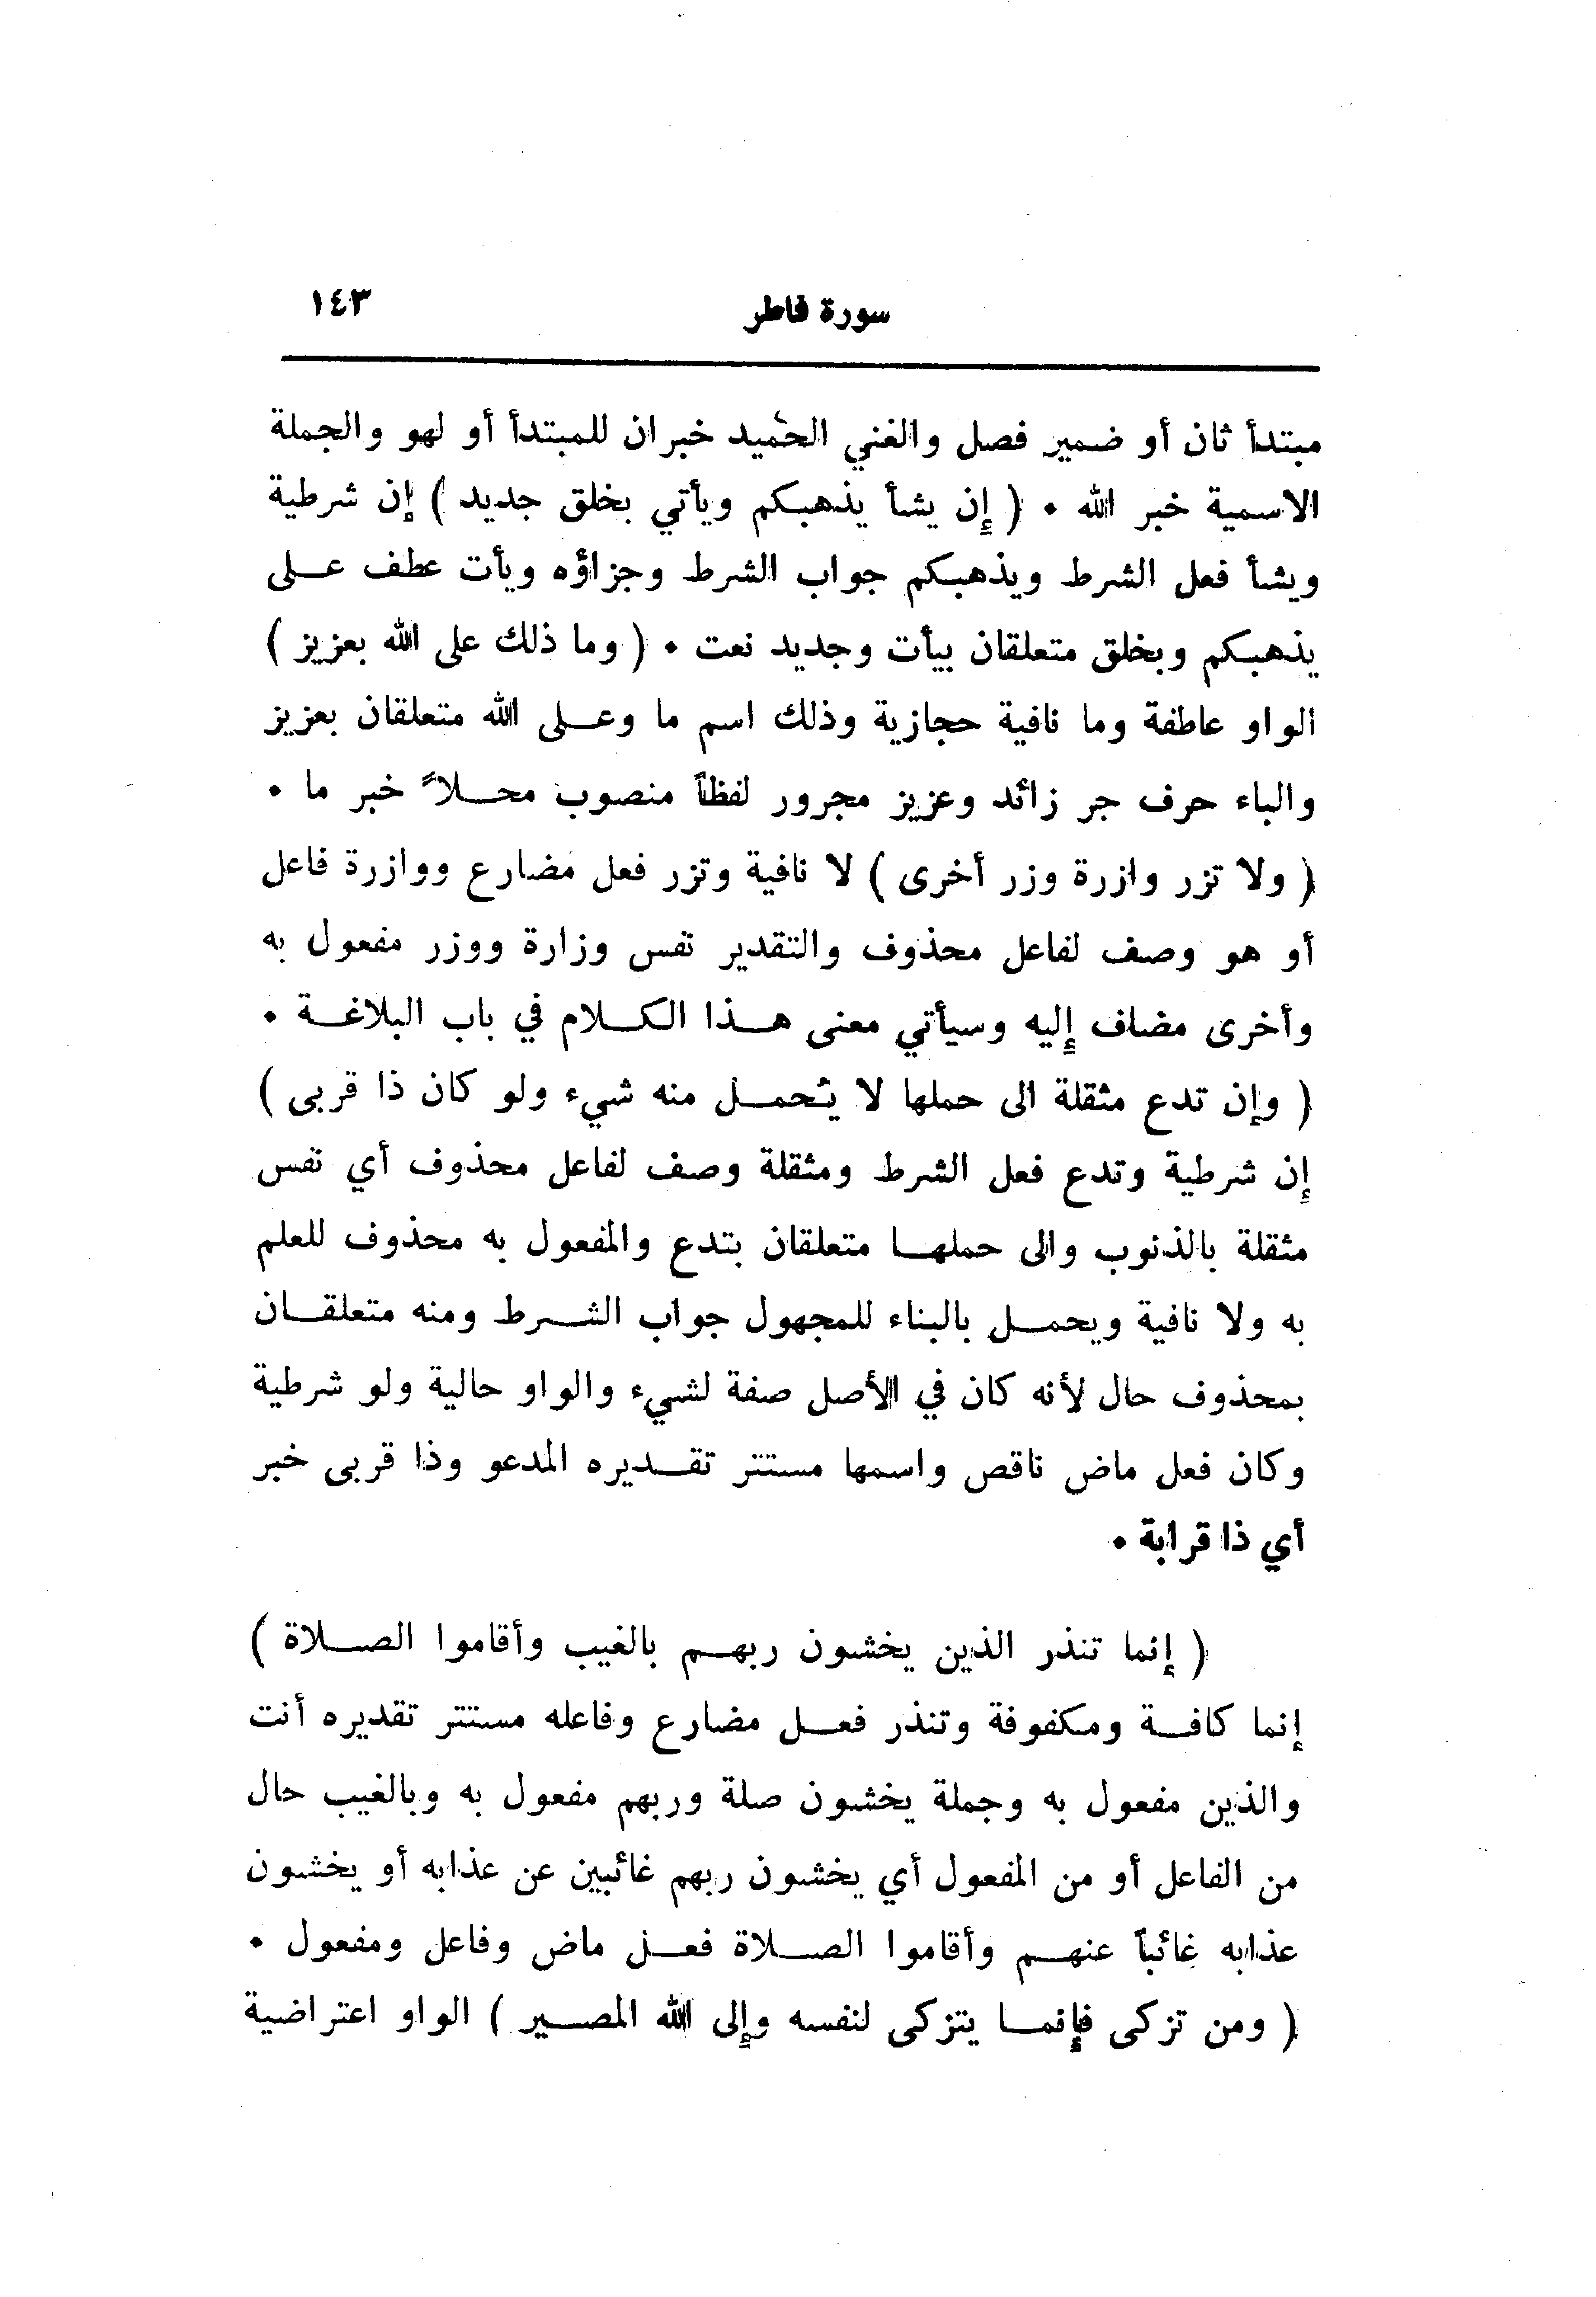 سورة فاطر ١٤٣
مبتدأ ثان أو ضمير فصل والغني الحميد خبران للمبتدأ أو لهو والجملة
الاسمية خبر الله . ( إن يشأ يذهبكم ويأتي بخلق جديد ) إن شرطية
ويشأ فعل الشرط ويذهبكم جواب الشرط وجزاؤه ويأت عطف على
يذهبكم وبخلق متعلقان بيأت وجديد نعت . ( وما ذلك على الله بعزيز )
الواو عاطفة وما نافية حجازية وذلك اسم ما وعلى الله متعلقان بعزيز
والباء حرف جر زائد وعزيز مجرور لفظاً منصوب محلاً خبر ما .
( ولا تزر وازرة وزر أخرى ) لا نافية وتزر فعل مضارع ووازرة فاعل
أو هو وصف لفاعل محذوف والتقدير نفس وزارة ووزر مفعول به
وأخرى مضاف إليه وسيأتي معنى هذا الكلام في باب البلاغة .
( وإن تدع مثقلة الى حملها لا يُحمل منه شيء ولو كان ذا قربى )
إن شرطية وتدع فعل الشرط ومثقلة وصف لفاعل محذوف أي نفس
مثقلة بالذنوب والى حملها متعلقان بتدع والمفعول به محذوف للعلم
به ولا نافية ويحمل بالبناء للمجهول جواب الشرط ومنه متعلقان
بمحذوف حال لأنه كان في الأصل صفة لشيء والواو حالية ولو شرطية
وكان فعل ماض ناقص واسمها مستتر تقديره المدعو وذا قربى خبر
أي ذا قرابة .
( إنما تنذر الذين يخشون ربهم بالغيب وأقاموا الصلاة )
إنما كافة ومكفوفة وتنذر فعل مضارع وفاعله مستتر تقديره أنت
والذين مفعول به وجملة يخشون صلة وربهم مفعول به وبالغيب حال
من الفاعل أو من المفعول أي يخشون ربهم غائبين عن عذابه أو يخشون
عذابه غائباً عنهم وأقاموا الصلاة فعل ماض وفاعل ومفعول .
( ومن تزكى فإنما يتزكى لنفسه وإلى الله المصير ) الواو اعتراضية